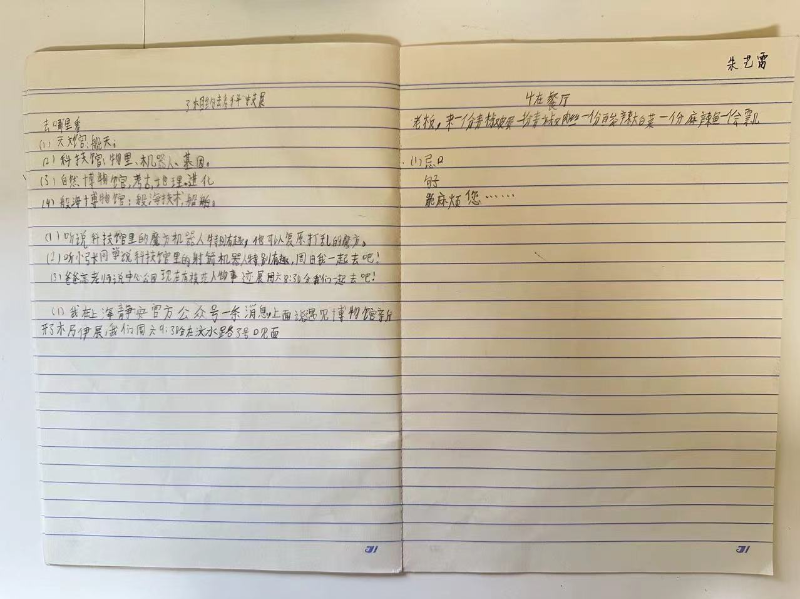 3相约去科技展
去哪里看
(1) 天文馆:航天。
(2) 科技馆,物里、机器人、基因。
(3) 自然博物馆,考古,地理。进化
(4) 航海博物馆:航海技术,船舶。
(1) 听说科技馆里的魔方机器人特别有趣,他可以复原打乱的魔方。
(2) 听小张同学说科技馆里的射箭机器人特别有趣,周日我一起去吧!
(3) 爸爸,老师说中心公园现在有模范人物事迹展周六8:30分我们一起去吧!
(1) 我在上海静安官方公众号一条消息,上面说 博物馆
展我们周六9:30在汶水路3号口见面
朱艺雷
4在餐厅
老板,来一份青椒 一份 一份 白菜 一份麻辣鱼一
(1) 忌口
句子
能麻烦您……